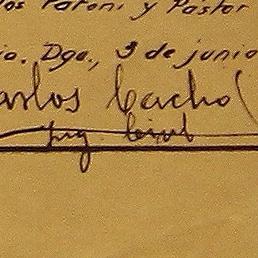 los Patoni y Pastor
io. Dgo., 3 de junio
arlos Cacho
Ing. Civil